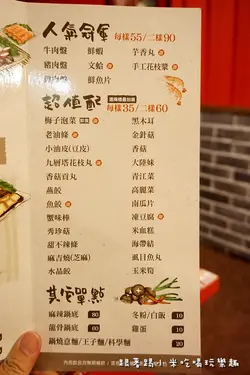 人氣冠軍 每樣55/二樣90
牛肉盤 鮮蝦 芋香丸
豬肉盤 文蛤 手工花枝漿
雞肉盤 鮮魚片
超值配 每樣35/二樣60
梅子泡菜 黑木耳
老油條 金針菇
小油皮(豆皮) 香菇
九層塔花枝丸 大陸妹
香菇貢丸 青江菜
燕餃 高麗菜
魚餃 南瓜片
蟹味棒 凍豆腐
秀珍菇 米血糕
甜不辣條 海帶結
麻吉燒(芝麻) 虱目魚丸
水晶餃 玉米筍
其它單點
麻辣鍋底 80 冬粉/白飯 10
龍骨鍋底 80 雞蛋 10
鍋燒意麵/王子麵/科學麵 20
跟著踢小米吃喝玩樂趣